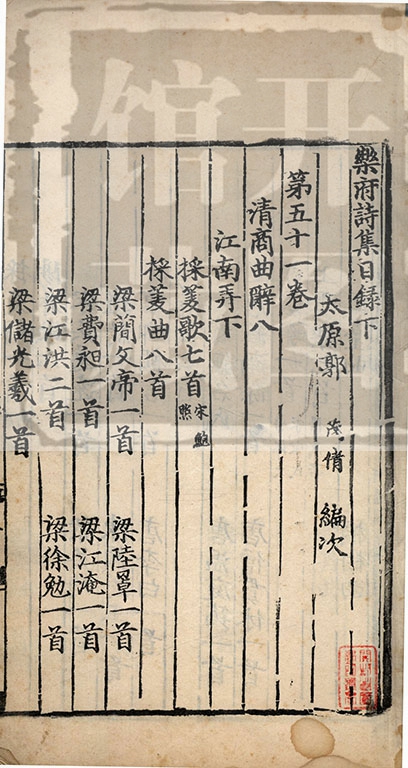 樂府詩集目録下
太原郭茂倩編次
第五十一卷
清商曲辭八
江南弄下
採菱歌七首 宋鮑照
採菱曲八首
梁簡文帝一首 梁陸罩一首
梁費昶一首 梁江淹一首
梁江洪二首 梁徐勉一首
梁儲光羲一首